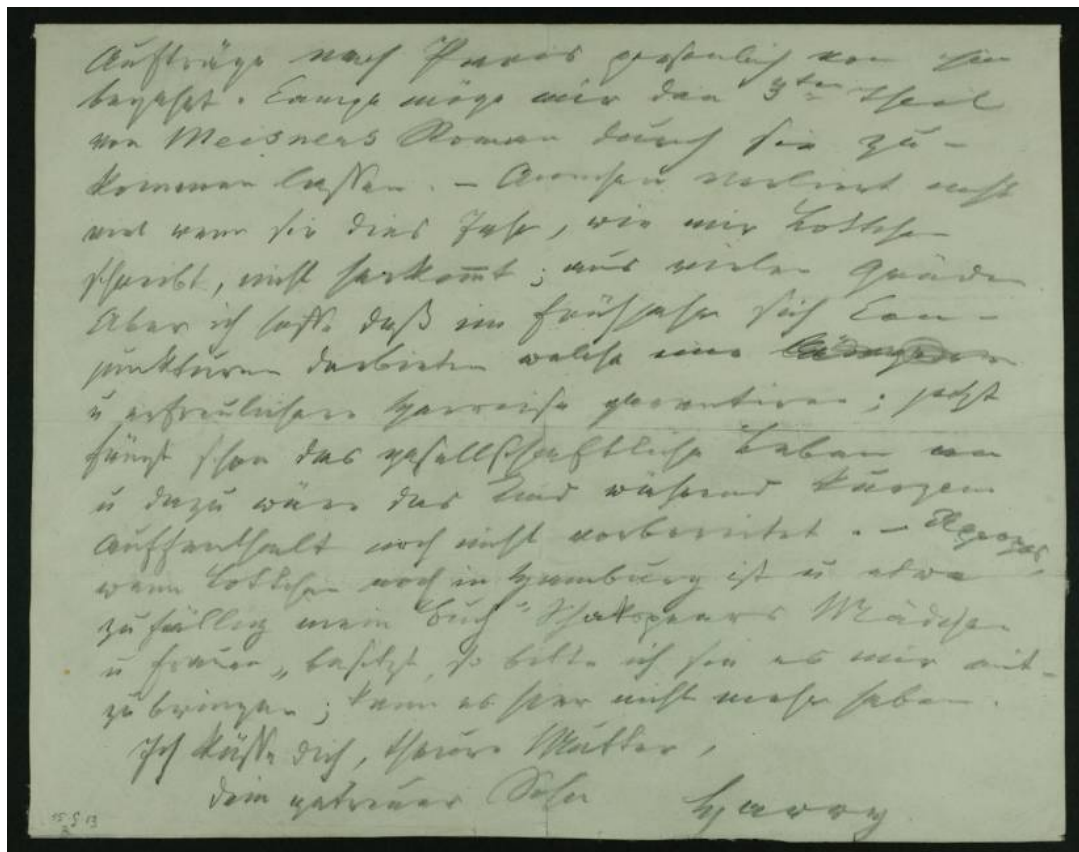 Aufträge nach Paris persönlich von ihm
begehrt. Campe möge mir den 3ten Theil
von Meisners Roman durch sie zu-
kommen lassen. – Annchen verliert nicht
viel wenn sie dies Jahr, wie mir Lottchen
schreibt, nicht herkom̅t; aus vielen Gründen
Aber ich hoffe daß im Frühjahr sich Con-
junkturen darbieten welche eine
u erfreulichere Herreise garantiren; jetzt
fängt schon das gesellschaftliche Leben an
u dazu wäre das Kind während kurzem
Auffenthalt noch nicht vorbereitet. – Apropos,
wenn Lottchen noch in Hamburg ist u etwa
zufällig mein Buch "Shakspears Mädchen
u Frauen„ besitzt, so bitte ich sie es mir mit-
zubringen; kann es hier nicht mehr haben.
Ich küsse dich, theure Mutter,
dein getreuer Sohn Harry